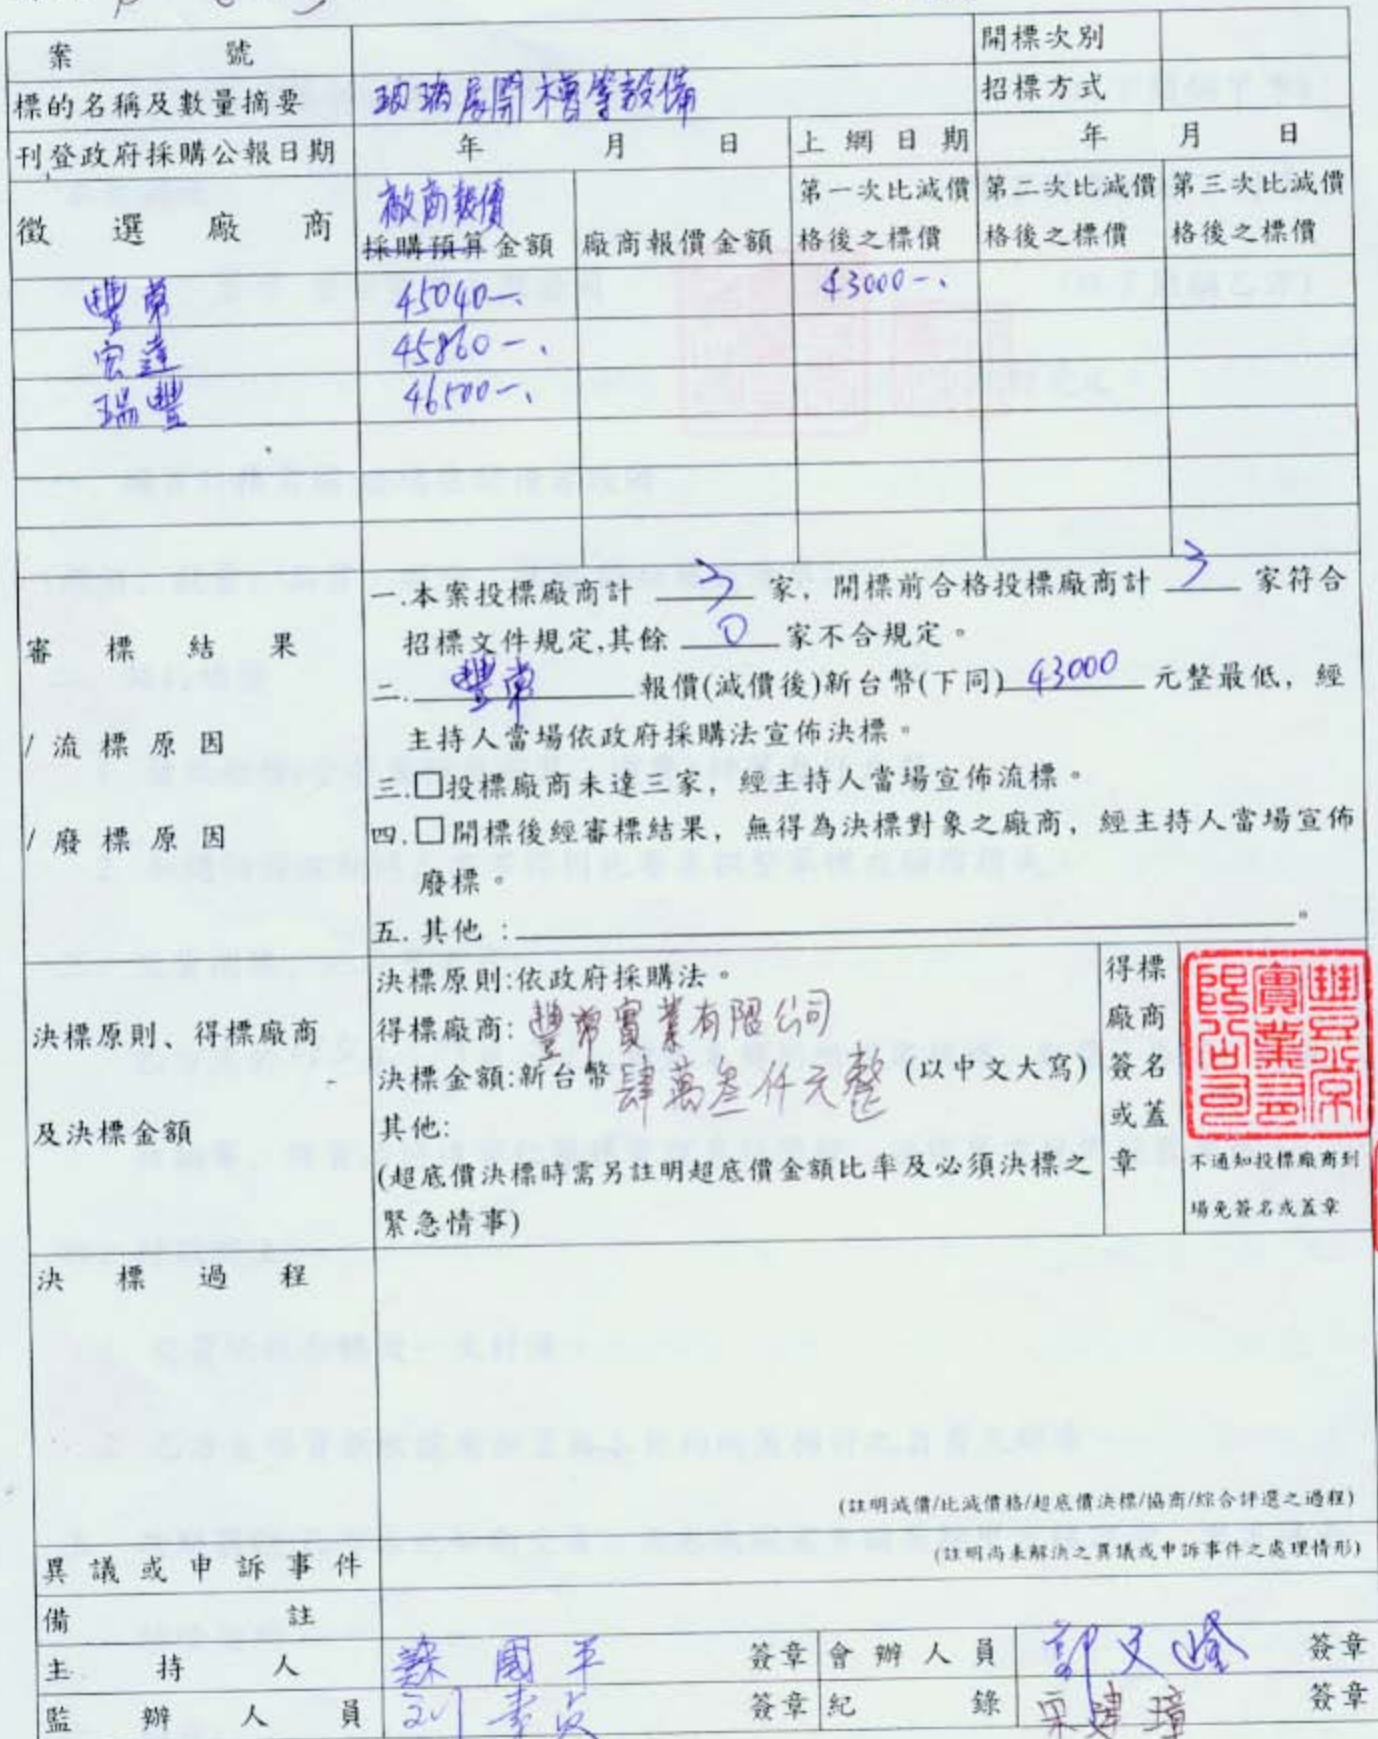 案號
開標次別
標的名稱及數量摘要 玻璃展開槽等設備
招標方式
刊登政府採購公報日期 年 月 日 上網日期 年 月 日
徵選廠商
廠商報價
採購預算金額
廠商報價金額
第一次比減價格後之標價
第二次比減價格後之標價
第三次比減價格後之標價
45040-. 43000-.
宏達 45860-.
瑞豐 46500-.
審標結果
/流標原因
/廢標原因
一.本案投標廠商計 3 家,開標前合格投標廠商計 3 家符合
招標文件規定,其餘 0 家不合規定。
二. 報價(減價後)新台幣(下同) 43000 元整最低,經
主持人當場依政府採購法宣佈決標。
三.□投標廠商未達三家,經主持人當場宣佈流標。
四.□開標後經審標結果,無得為決標對象之廠商,經主持人當場宣佈
廢標。
五.其他:。
決標原則、得標廠商
及決標金額
決標原則:依政府採購法。
得標廠商: 實業有限公司
決標金額:新台幣 肆萬叁仟元整 (以中文大寫)
其他:
(超底價決標時需另註明超底價金額比率及必須決標之
緊急情事)
得標
廠商
簽名
或蓋
章
不通知投標廠商到
場免簽名或蓋章
決標過程
(註明減價/比減價格/超底價決標/協商/綜合評選之過程)
異議或申訴事件
(註明尚未解決之異議或申訴事件之處理情形)
備註
主持人 國平 簽章 會辦人員 簽章
監辦人員 簽章 紀錄 宋建璋 簽章